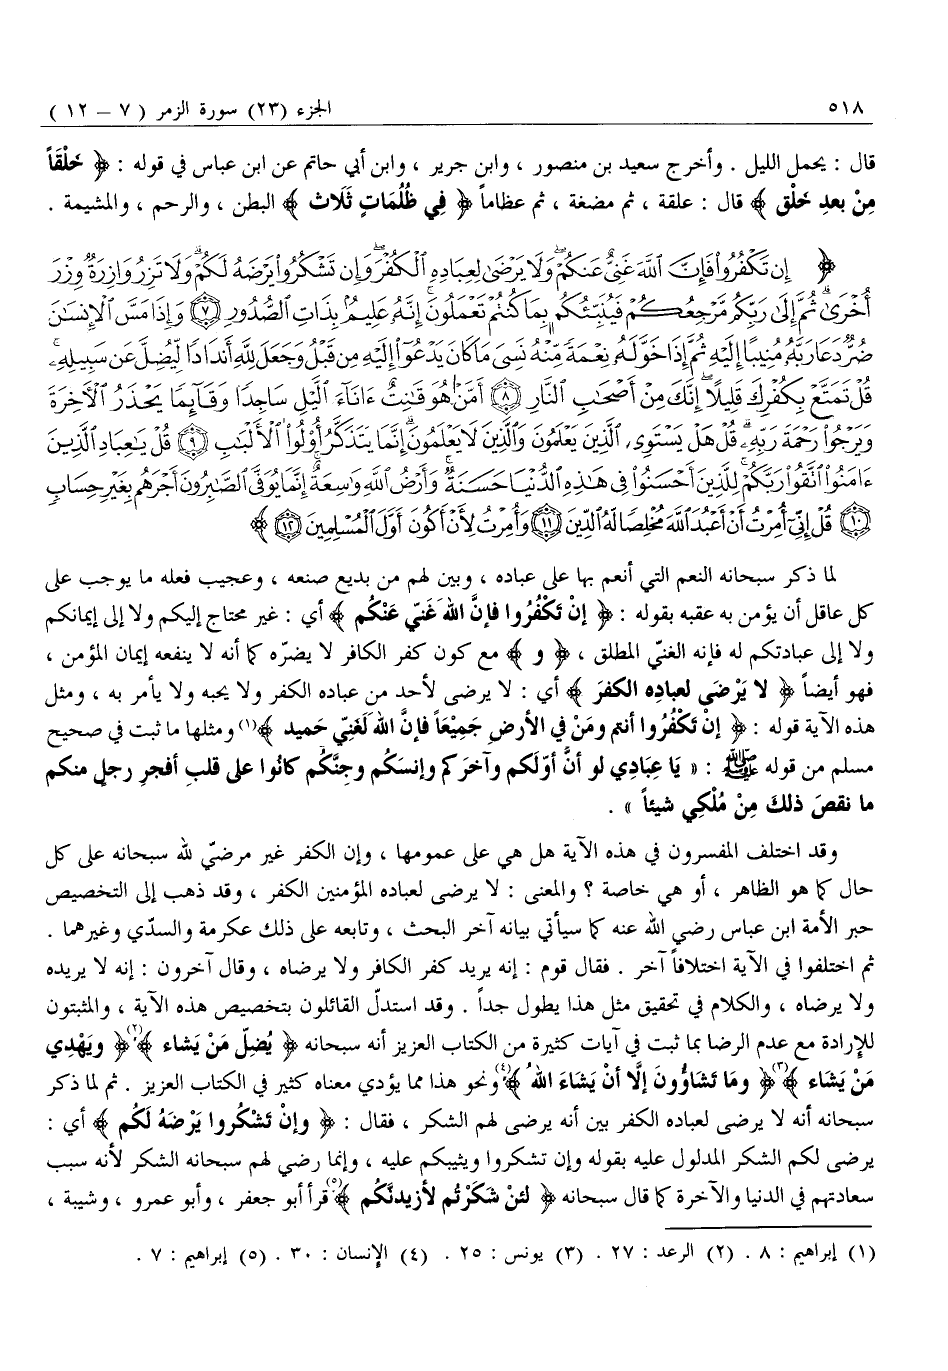 ٥١٨ الجزء (٢٣) سورة الزمر ( ٧ – ١٢ )
قال : يحمل الليل . وأخرج سعيد بن منصور ، وابن جرير ، وابن أبي حاتم عن ابن عباس في قوله : ﴿ خَلْقَاً
مِنْ بعدِ خَلْق ﴾ قال : علقة ، ثم مضغة ، ثم عظاماً ﴿ فِي ظُلُمَاتٍ ثَلَاث ﴾ البطن ، والرحم ، والمشيمة .
﴿ إِن تَكْفُرُوا۟ فَإِنَّ ٱللَّهَ غَنِىٌّ عَنكُمْ ۖ وَلَا يَرْضَىٰ لِعِبَادِهِ ٱلْكُفْرَ ۖ وَإِن تَشْكُرُوا۟ يَرْضَهُ لَكُمْ ۗ وَلَا تَزِرُ وَازِرَةٌ وِزْرَ
أُخْرَىٰ ۗ ثُمَّ إِلَىٰ رَبِّكُم مَّرْجِعُكُمْ فَيُنَبِّئُكُم بِمَا كُنتُمْ تَعْمَلُونَ ۚ إِنَّهُ عَلِيمٌۢ بِذَاتِ ٱلصُّدُورِ ﴿٧﴾ وَإِذَا مَسَّ ٱلْإِنسَـٰنَ
ضُرٌّ دَعَا رَبَّهُ مُنِيبًا إِلَيْهِ ثُمَّ إِذَا خَوَّلَهُ نِعْمَةً مِّنْهُ نَسِىَ مَا كَانَ يَدْعُوٓا۟ إِلَيْهِ مِن قَبْلُ وَجَعَلَ لِلَّهِ أَندَادًا لِّيُضِلَّ عَن سَبِيلِهِ ۚ
قُلْ تَمَتَّعْ بِكُفْرِكَ قَلِيلًا ۖ إِنَّكَ مِنْ أَصْحَـٰبِ ٱلنَّارِ ﴿٨﴾ أَمَّنْ هُوَ قَـٰنِتٌ ءَانَآءَ ٱلَّيْلِ سَاجِدًا وَقَآئِمًا يَحْذَرُ ٱلْـَٔاخِرَةَ
وَيَرْجُوا۟ رَحْمَةَ رَبِّهِ ۗ قُلْ هَلْ يَسْتَوِى ٱلَّذِينَ يَعْلَمُونَ وَٱلَّذِينَ لَا يَعْلَمُونَ ۗ إِنَّمَا يَتَذَكَّرُ أُو۟لُوا۟ ٱلْأَلْبَـٰبِ ﴿٩﴾ قُلْ يَـٰعِبَادِ ٱلَّذِينَ
ءَامَنُوا۟ ٱتَّقُوا۟ رَبَّكُمْ ۚ لِلَّذِينَ أَحْسَنُوا۟ فِى هَـٰذِهِ ٱلدُّنْيَا حَسَنَةٌ ۗ وَأَرْضُ ٱللَّهِ وَٰسِعَةٌ ۗ إِنَّمَا يُوَفَّى ٱلصَّـٰبِرُونَ أَجْرَهُم بِغَيْرِ حِسَابٍ
﴿١٠﴾ قُلْ إِنِّىٓ أُمِرْتُ أَنْ أَعْبُدَ ٱللَّهَ مُخْلِصًا لَّهُ ٱلدِّينَ ﴿١١﴾ وَأُمِرْتُ لِأَنْ أَكُونَ أَوَّلَ ٱلْمُسْلِمِينَ ﴿١٢﴾ ﴾
لما ذكر سبحانه النعم التي أنعم بها على عباده ، وبين لهم من بديع صنعه ، وعجيب فعله ما يوجب على
كل عاقل أن يؤمن به عقبه بقوله : ﴿ إِنْ تَكْفُرُوا فإنَّ اللهَ غَنيّ عَنْكُم ﴾ أي : غير محتاج إليكم ولا إلى إيمانكم
ولا إلى عبادتكم له فإنه الغنيّ المطلق ، ﴿ و ﴾ مع كون كفر الكافر لا يضرّه كما أنه لا ينفعه إيمان المؤمن ،
فهو أيضاً ﴿ لا يَرْضَى لعبادِه الكفرَ ﴾ أي : لا يرضى لأحد من عباده الكفر ولا يحبه ولا يأمر به ، ومثل
هذه الآية قوله : ﴿ إنْ تَكْفُرُوا أنتم ومَنْ في الأرضِ جَمِيْعَاً فإنَّ اللهَ لَغَنيّ حَميد ﴾(١) ومثلها ما ثبت في صحيح
مسلم من قوله ﷺ : « يَا عِبَادِي لو أنَّ أوّلَكم وآخرَكم وإنسَكُم وجنَّكُم كانُوا على قلبِ أفجرِ رجلٍ منكم
ما نقصَ ذلكَ مِنْ مُلْكِي شيئاً » .
وقد اختلف المفسرون في هذه الآية هل هي على عمومها ، وإن الكفر غير مرضيّ لله سبحانه على كل
حال كما هو الظاهر ، أو هي خاصة ؟ والمعنى : لا يرضى لعباده المؤمنين الكفر ، وقد ذهب إلى التخصيص
حبر الأمة ابن عباس رضي الله عنه كما سيأتي بيانه آخر البحث ، وتابعه على ذلك عكرمة والسدّي وغيرهما .
ثم اختلفوا في الآية اختلافاً آخر . فقال قوم : إنه يريد كفر الكافر ولا يرضاه ، وقال آخرون : إنه لا يريده
ولا يرضاه ، والكلام في تحقيق مثل هذا يطول جداً . وقد استدلّ القائلون بتخصيص هذه الآية ، والمثبتون
للإرادة مع عدم الرضا بما ثبت في آيات كثيرة من الكتاب العزيز أنه سبحانه ﴿ يُضلّ مَنْ يَشاء ﴾(٢) ﴿ ويَهْدي
مَنْ يَشَاء ﴾(٣) ﴿ وما تَشاؤُونَ إلَّا أنْ يَشَاءَ اللهُ ﴾(٤) ونحو هذا مما يؤدي معناه كثير في الكتاب العزيز . ثم لما ذكر
سبحانه أنه لا يرضى لعباده الكفر بين أنه يرضى لهم الشكر ، فقال : ﴿ وإنْ تَشْكُروا يَرْضَهُ لَكُم ﴾ أي :
يرضى لكم الشكر المدلول عليه بقوله وإن تشكروا ويثيبكم عليه ، وإنما رضي لهم سبحانه الشكر لأنه سبب
سعادتهم في الدنيا والآخرة كما قال سبحانه ﴿ لئنْ شَكَرْتُم لأزيدنَّكُم ﴾(٥) قرأ أبو جعفر ، وأبو عمرو ، وشيبة ،
(١) إبراهيم : ٨ . (٢) الرعد : ٢٧ . (٣) يونس : ٢٥ . (٤) الإنسان : ٣٠ . (٥) إبراهيم : ٧ .